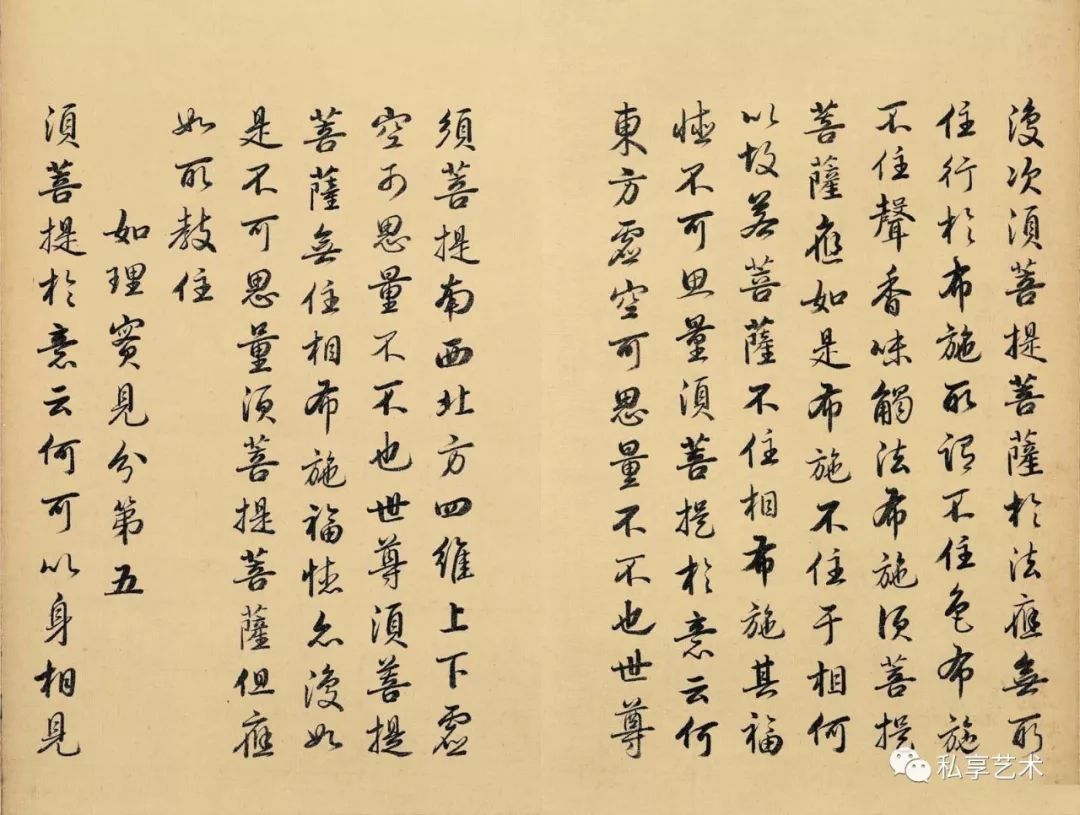 復次須菩提菩薩於法應無所
住行於布施所謂不住色布施
不住聲香味觸法布施須菩提
菩薩應如是布施不住于相何
以故若菩薩不住相布施其福
德不可思量須菩提於意云何
東方虛空可思量不不也世尊
須菩提南西北方四維上下虛
空可思量不不也世尊須菩提
菩薩無住相布施福德亦復如
是不可思量須菩提菩薩但應
如所教住
如理實見分第五
須菩提於意云何可以身相見
私享艺术